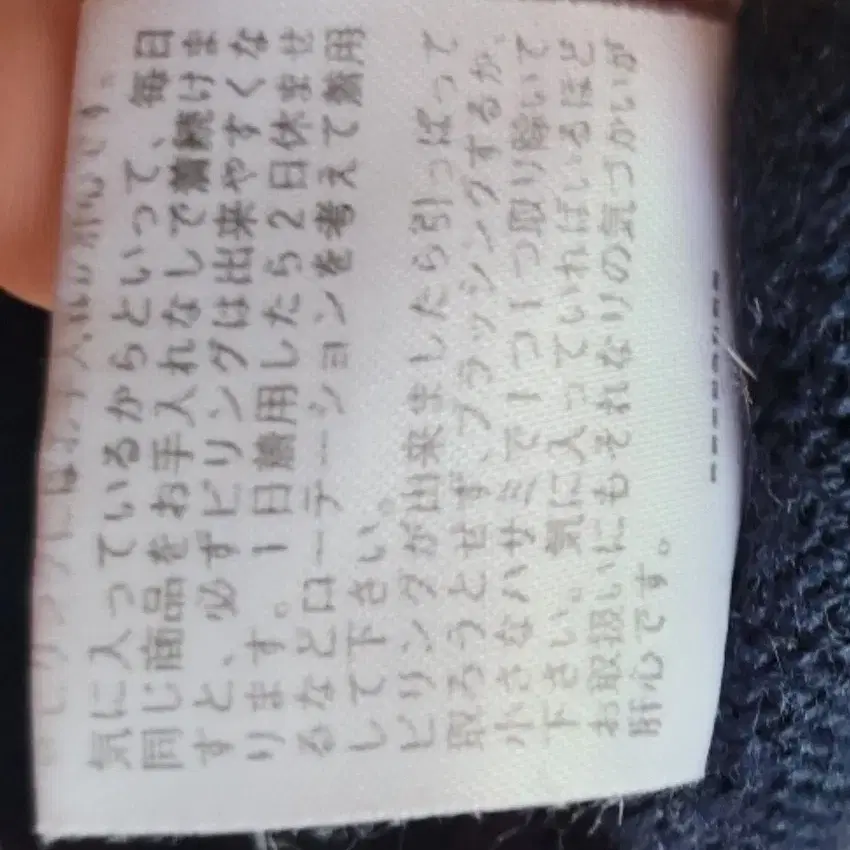 ピリングにはお手入れが肝心です。
気に入っているからといって、毎日
同じ商品をお手入れなしで着続けま
すと、必ずピリングは出来やすくな
ります。1日着用したら2日休ませ
るなどローテーションを考えて着用
して下さい。
ピリングが出来ましたら引っぱって
取ろうとせず、ブラッシングするか、
小さなハサミで1つ1つ取り除いて
下さい。気に入っていればいるほど
お取扱いにもそれなりの気づかいが
肝心です。